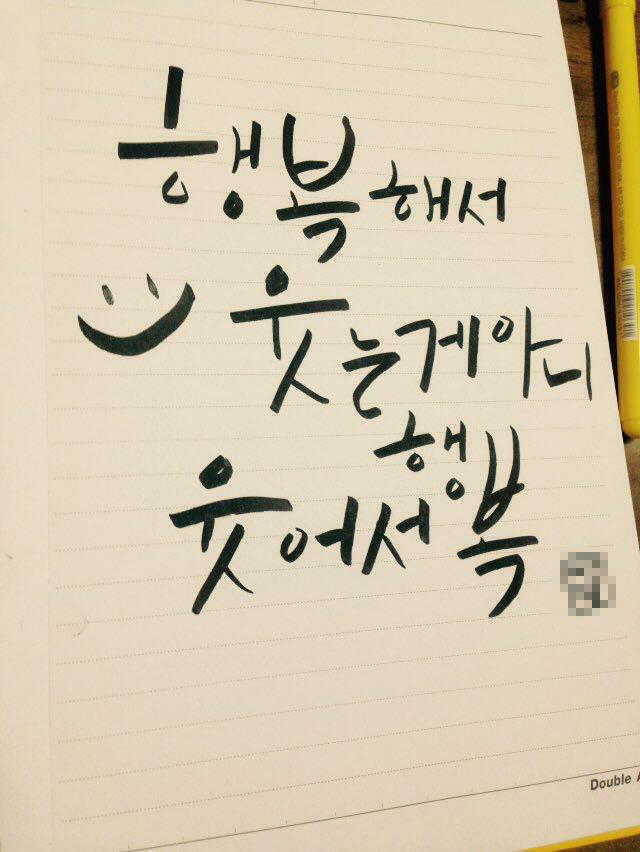 행복해서
웃는게아니
웃어서행복
Double